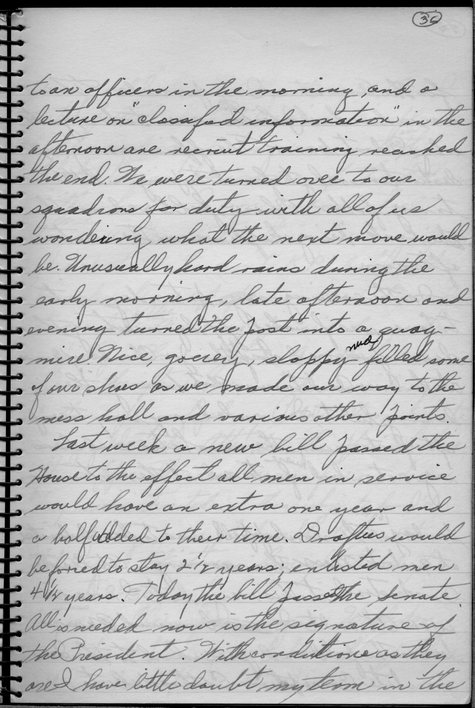 36
to an officers in the morning and a
lecture on "classified information" in the
afternoon are recruit training reached
the end. We were turned over to our
squadrons for duty with all of us
wondering what the next move would
be. Unusually hard rains during the
early morning, late afternoon and
evening turned the post into a quag-
mire. Nice, gooey, sloppy mud filled some
of our shoes as we made our way to the
mess hall and various other points.
Last week a new bill passed the
House to the effect all men in service
would have an extra one year and
a half added to their time. Draftees would
be forced to stay 2 1/2 years; enlisted men
4 1/2 years. Today the bill passed the Senate.
All is needed now is the signature of
the President. With conditions as they
are I have little doubt my term in the